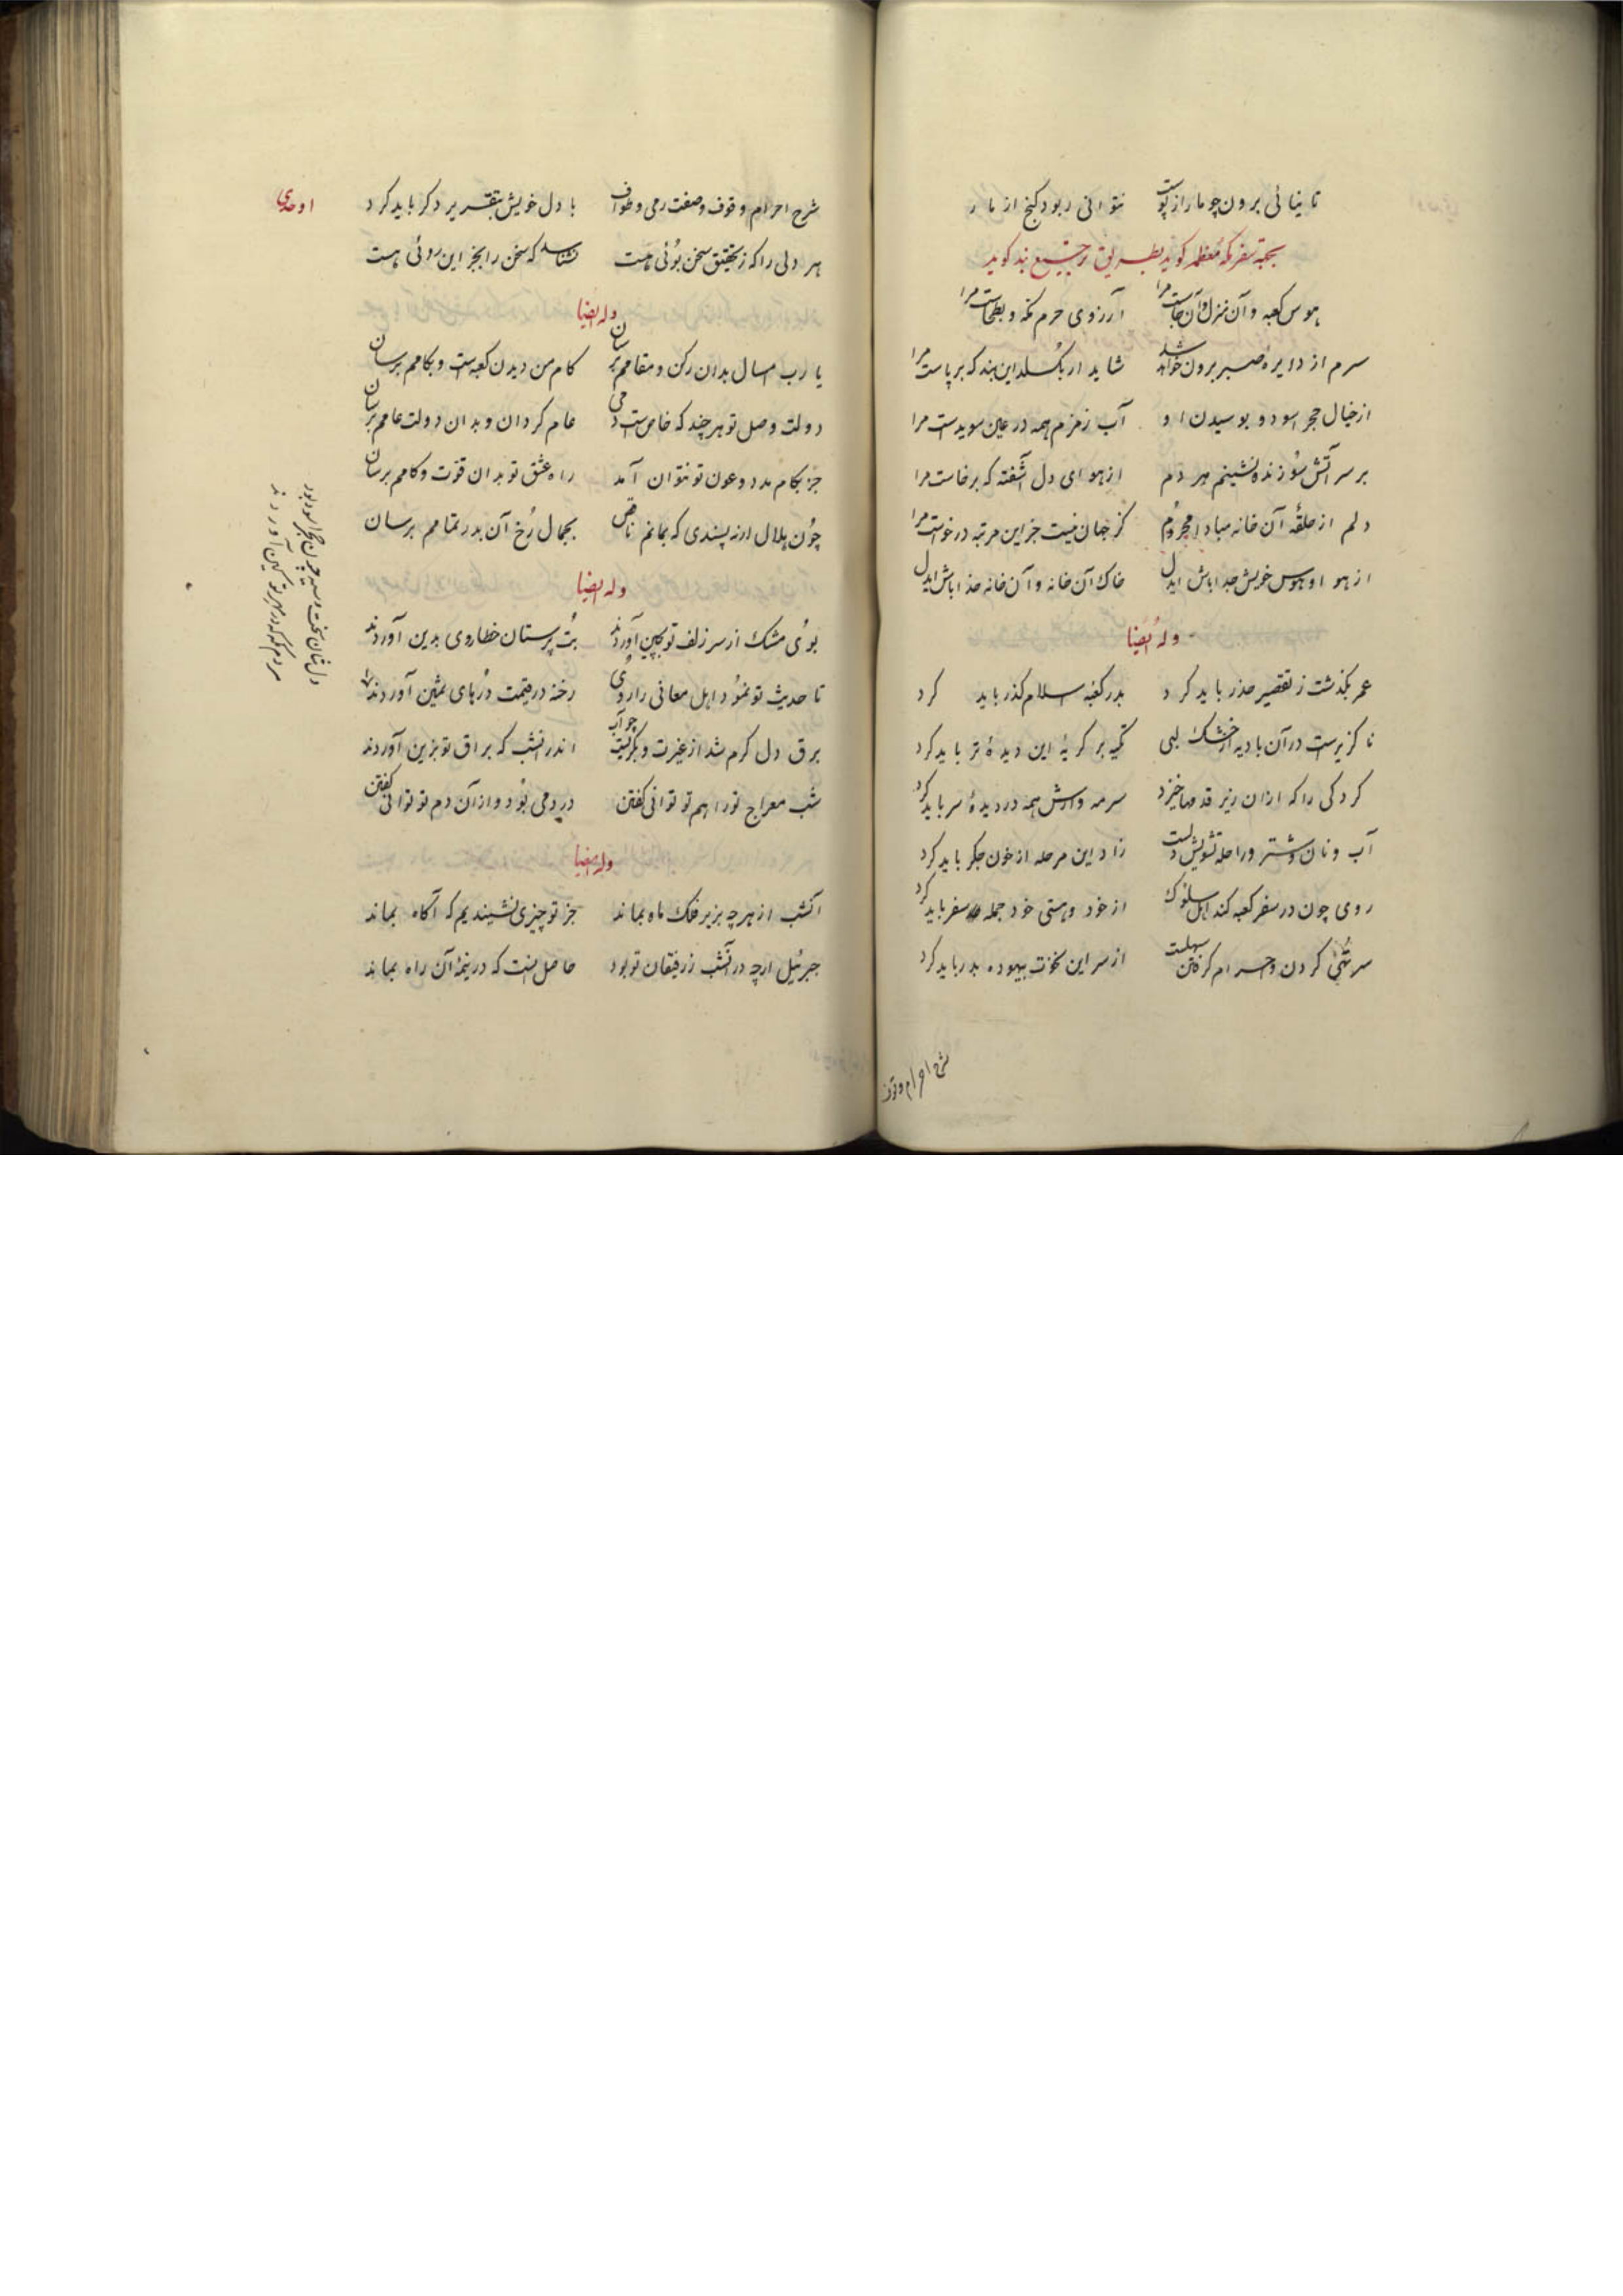 تا نیائی برون چو مار از پوست نتوانی ربود کنج از مار
بجهة سفر مکهٔ معظمه کوید بطریق ترجیع بند کوید
هوس کعبه و آن منزل و آن جاست مرا آرزوی حرم مکه و بطحاست مرا
سرم از دایرهٔ صبر برون خواهد شد شاید ار بکسلد این بند که بر پاست مرا
از خیال حجر اسود و بوسیدن او آب زمزم همه در عین سویداست مرا
بر سر آتش سوزنده نشینم هر دم از هوای دل آشفته که برخاست مرا
دلم از حلقهٔ آن خانه مبادا محروم کز جهان نیست جز این مرتبه درخواست مرا
از هوا و هوس خویش جدا باش ایدل خاک آن خانه و آن خانه خدا باش ایدل
وله ایضا
عمر بکذشت ز تقصیر حذر باید کرد بدر کعبه اسلام کذر باید کرد
ناکزیرست در آن بادیه از خشک لبی تکیه بر کریهٔ این دیدهٔ تر باید کرد
کردکی را که ازان ریز قدمها خیزد سرمه وارش همه در دیدهٔ سر باید کرد
آب و نان و شتر و راحله تشویش دلست زاد این مرحله از خون جکر باید کرد
روی چون در سفر کعبه کند اهل سلوک از خود و هستی خود جمله سفر باید کرد
سر تهی کردن و احرام کرفتن سهلست از سر این نخوت بیهوده بدر باید کرد
شرح احرام و وقوف
اوحدی
شرح احرام و وقوف و صفت رمی و طواف با دل خویش بتقریر دکر باید کرد
هر دلی را که ز تحقیق سخن بوئی هست نشناسد که سخن را بجز این روئی هست
وله ایضا
یا رب امسال بدان رکن و مقامم برسان کام من دیدن کعبه‌ست و بکامم برسان
دولت وصل تو هر چند که خاص‌ست دمی عام کردان و بدان دولت عامم برسان
جز بکام مدد و عون تو نتوان آمد راه عشق تو بدان قوت و کامم برسان
چون هلال ار نه پسندی که بمانم ناقص بجمال رخ آن بدر تمامم برسان
وله ایضا
بوی مشک از سر زلف تو بچین آوردند بت پرستان خطا روی بدین آوردند
تا حدیث تو نمود اهل معانی را روی رخنه در قیمت درهای ثمین آوردند
برق دل کرم شد از غیرت و بکریست چو آب اندر آنشب که براق تو بزین آوردند
شب معراج تو را هم تو توانی کفتن در دمی بود و از آن دم تو توانی کفتن
وله ایضا
آنشب از هر چه بزیر فلک ماه بماند جز تو چیزی نشنیدیم که آکاه بماند
جبرئیل ارچه در آنشب ز رفیقان تو بود حاصل اینست که در نیمهٔ آن راه بماند
دل‌شان سخت و سیه چون حجر اسود بود
مردم مکه که در مهر تو کین آوردند